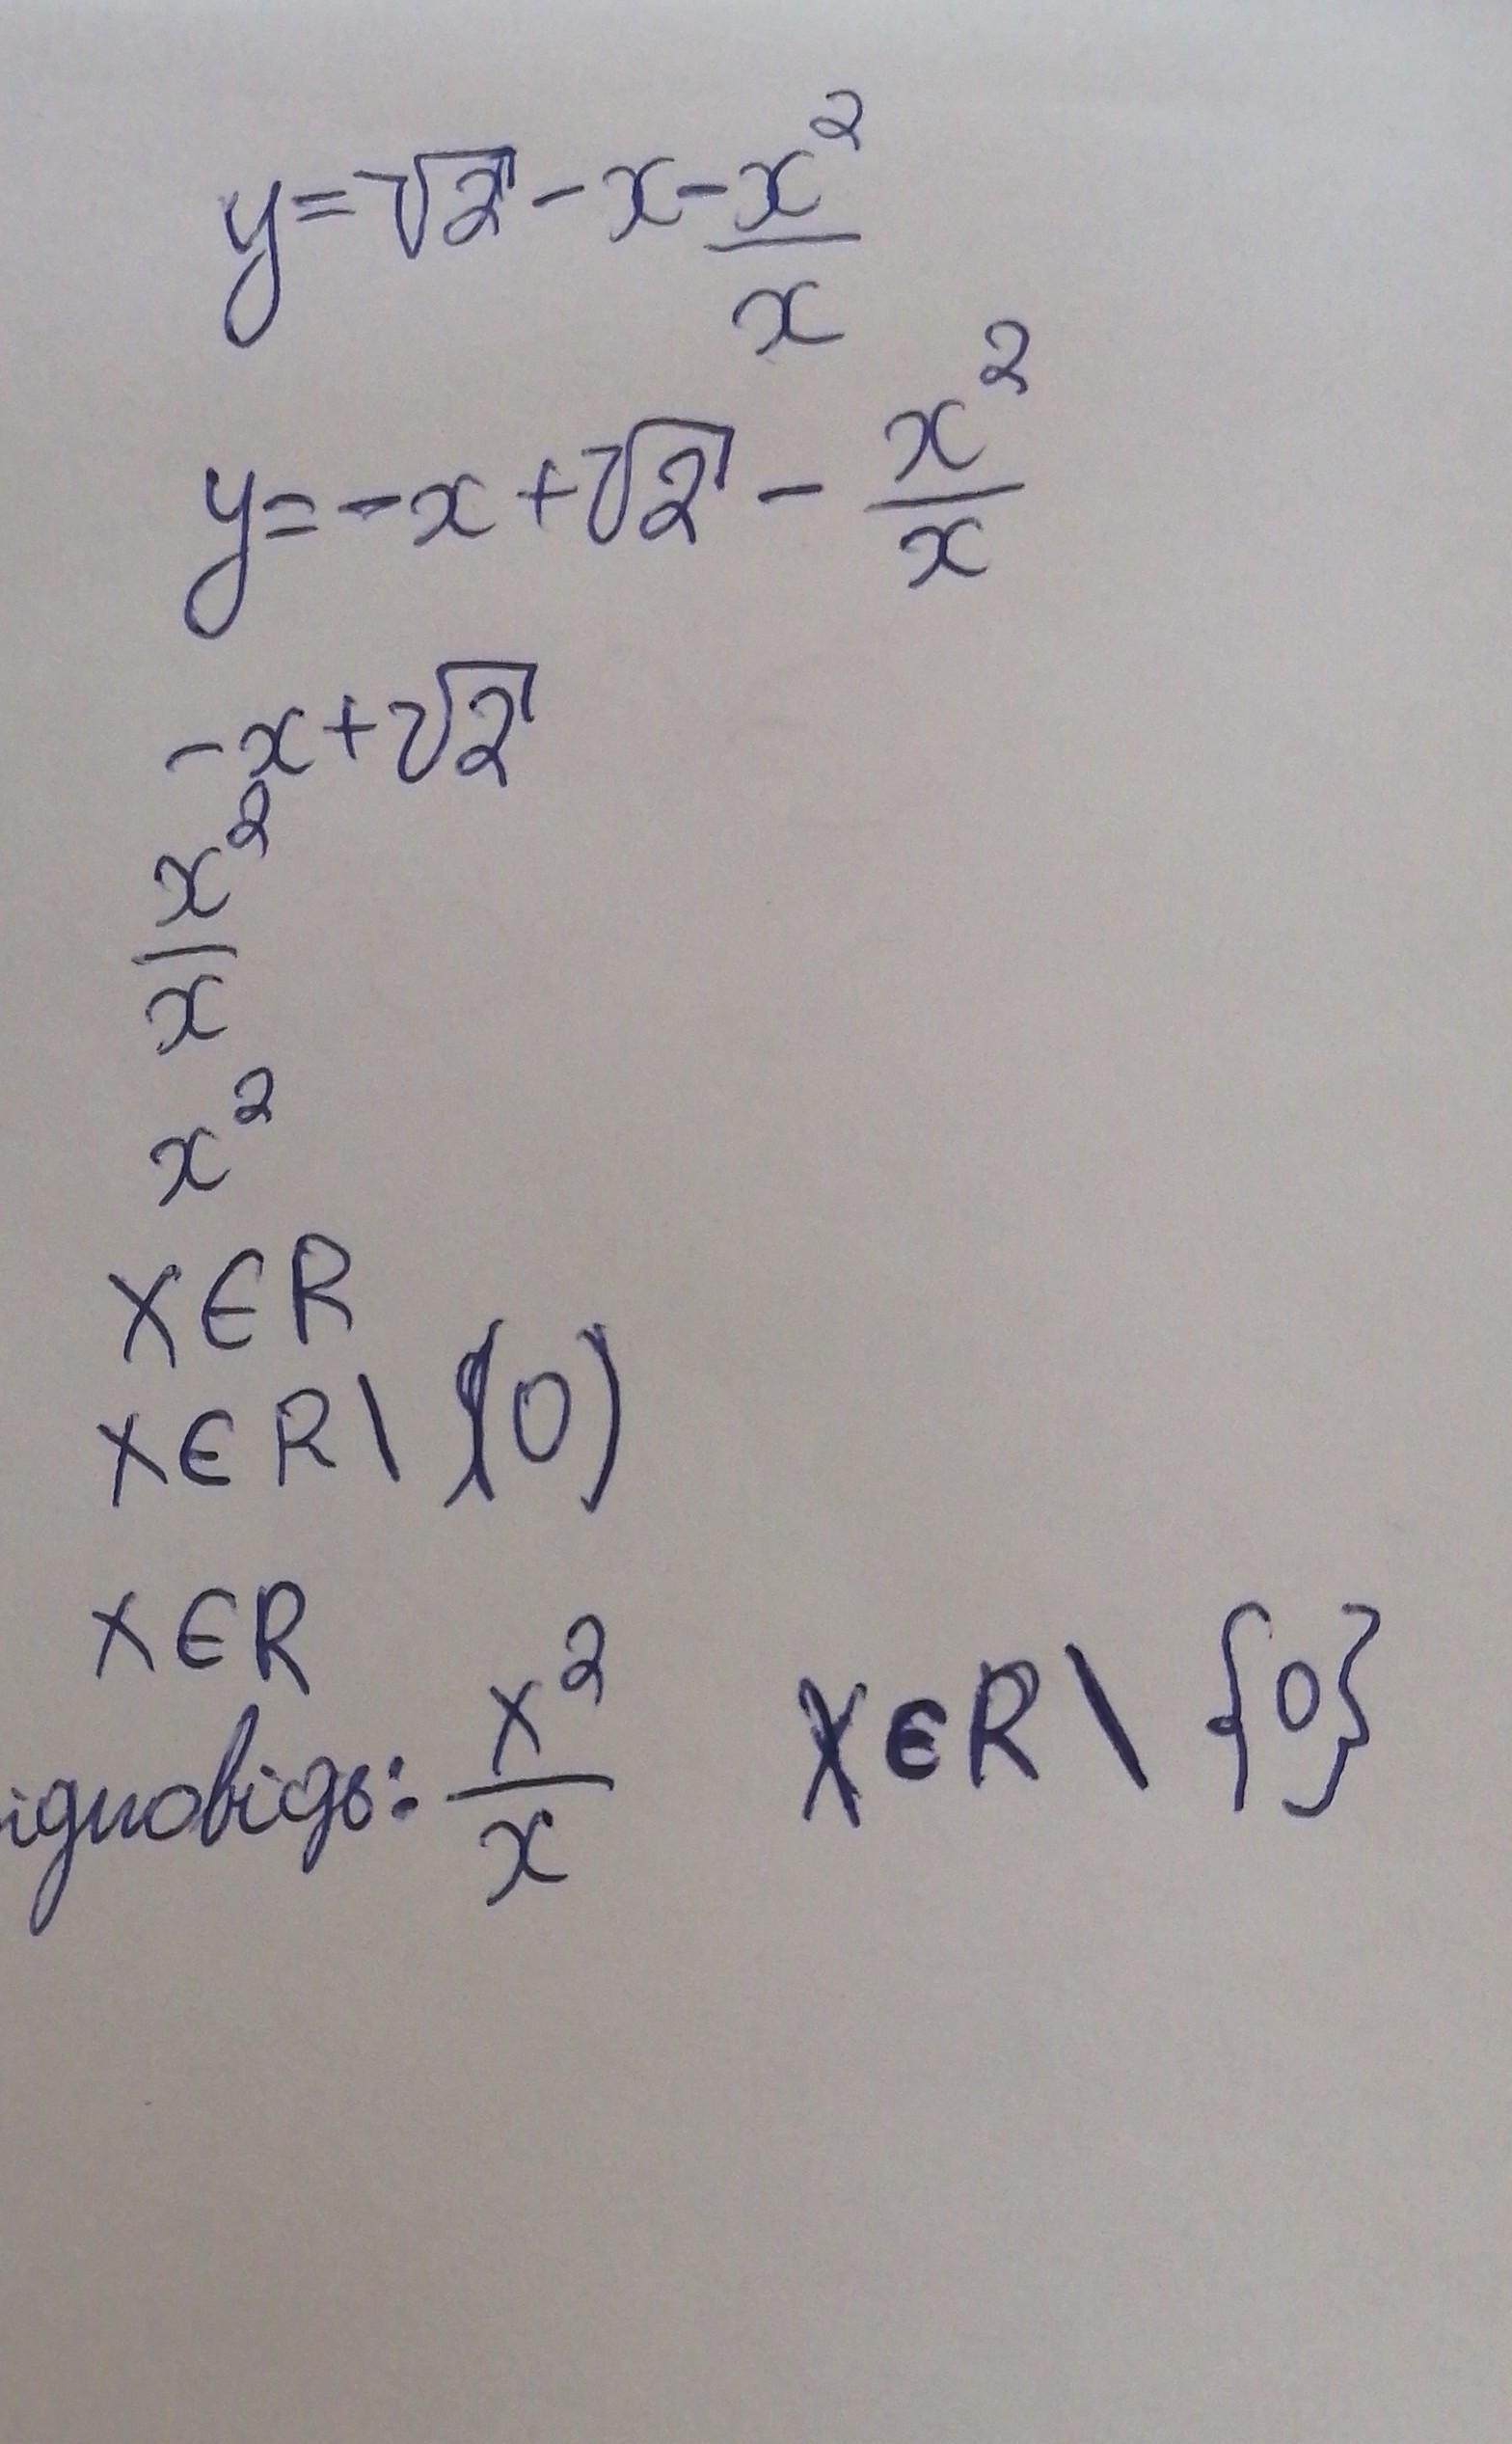 y=√2-x-x²/x
y=-x+√2-x²/x
-x+√2
x²/x
x²
x∈R
x∈R\(0)
x∈R
ідповідь: x²/x x∈R\{0}